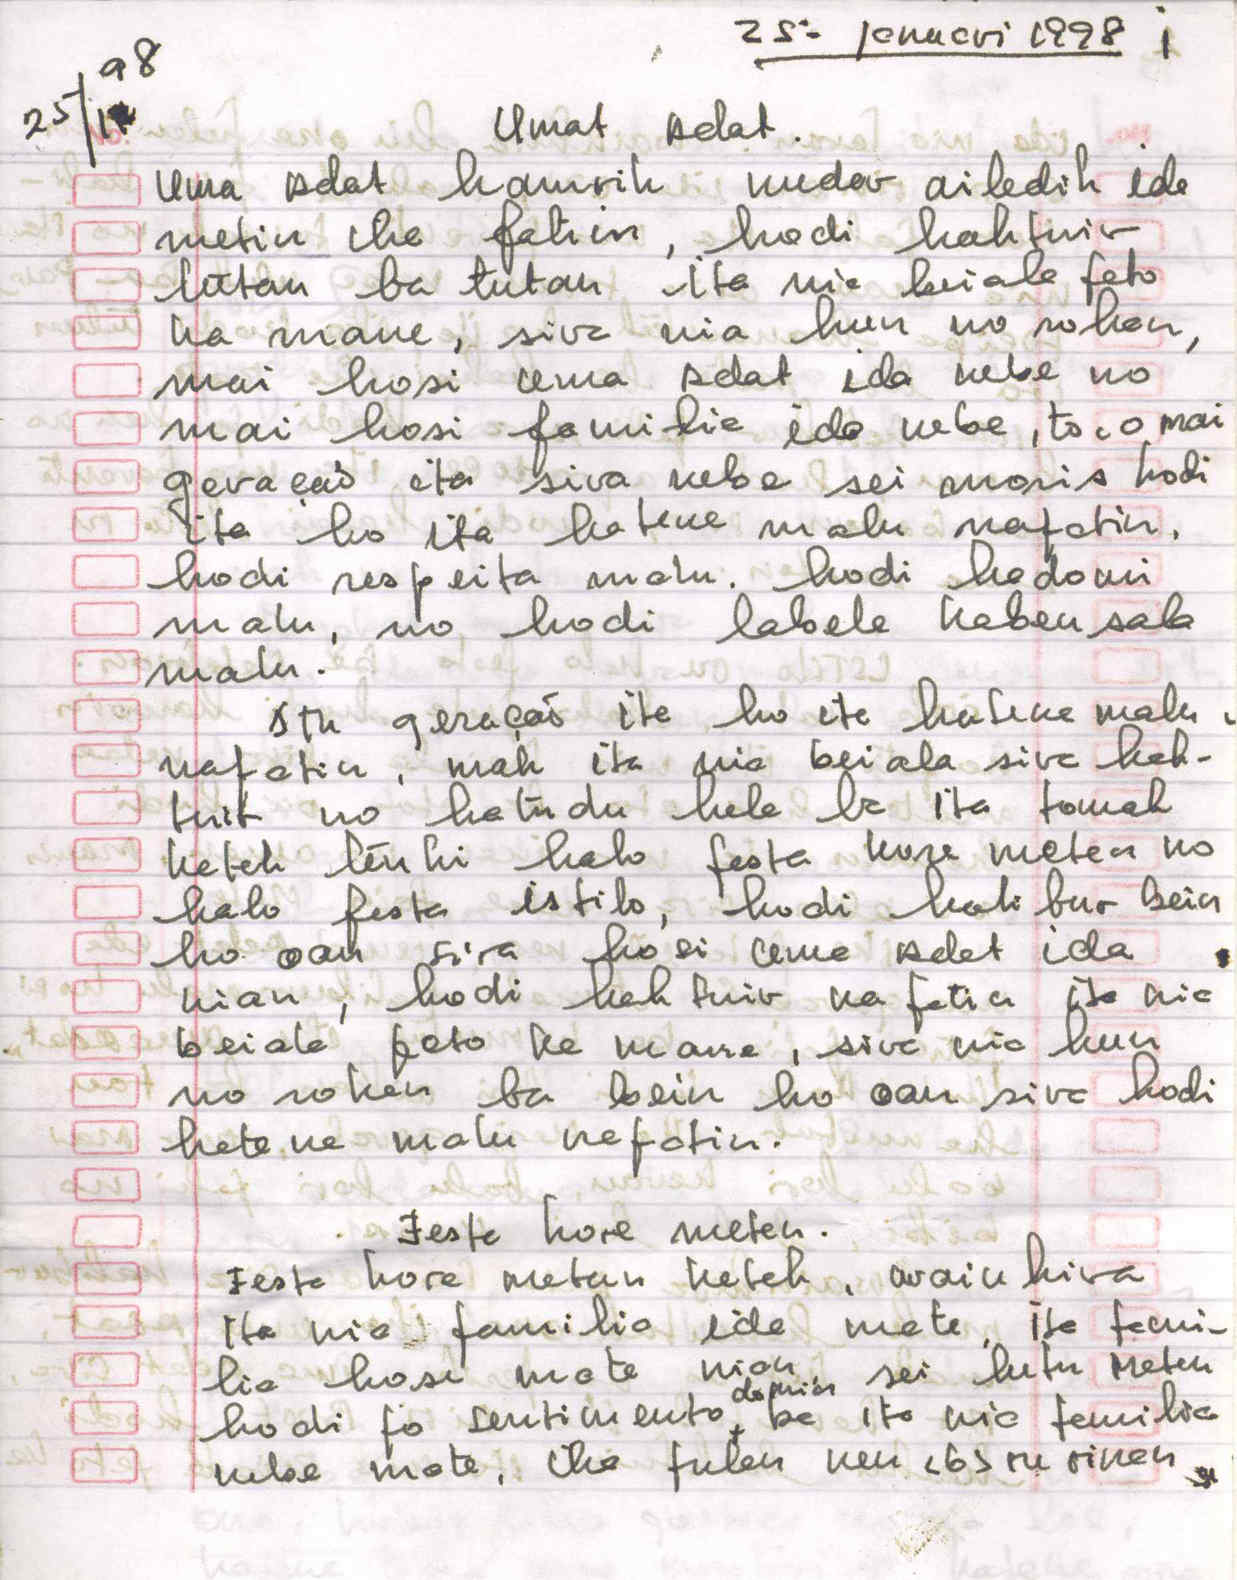 25- Januari 1998 i
25/1 98
Umat Adat.
Uma Adat hamrik nudar ailedik ida
metin iha fatin, hodi haktuir
tutan ba tutan ita nia beiala feto
ka mane, sira nia hun no rohan,
mai hosi uma Adat ida nebe no
mai hosi familia ida nebe, to o mai
geraçaõ ita sira nebe sei moris hodi
ita ho ita hatene malu nafatin,
hodi respeita malu. hodi hadomi
malu, no hodi labele kaben sala
malu.
Atu geraçaõ ita ho ita hatene malu
nafatin, mak ita nia beiala sira hak-
tuit no hatudu hela ba ita tomak
katek tenki halo festa kore metan no
halo festa istilo, hodi halibur bein
ho oan sira hosi uma Adat ida
nian, hodi haktuir nafatin ita nia
beiala feto ka mane, sira nia hun
no rohan ba bein ho oan sira hodi
hatene malu nafatin.
Festa kore metan.
Festa kore metan katek, wainhira
ita nia familia ida mate, ita fami-
lia hosi mate nian sei lutu metan
hodi fo sentimento ba ita nia familia
nebe mate, iha fulan nen (6)